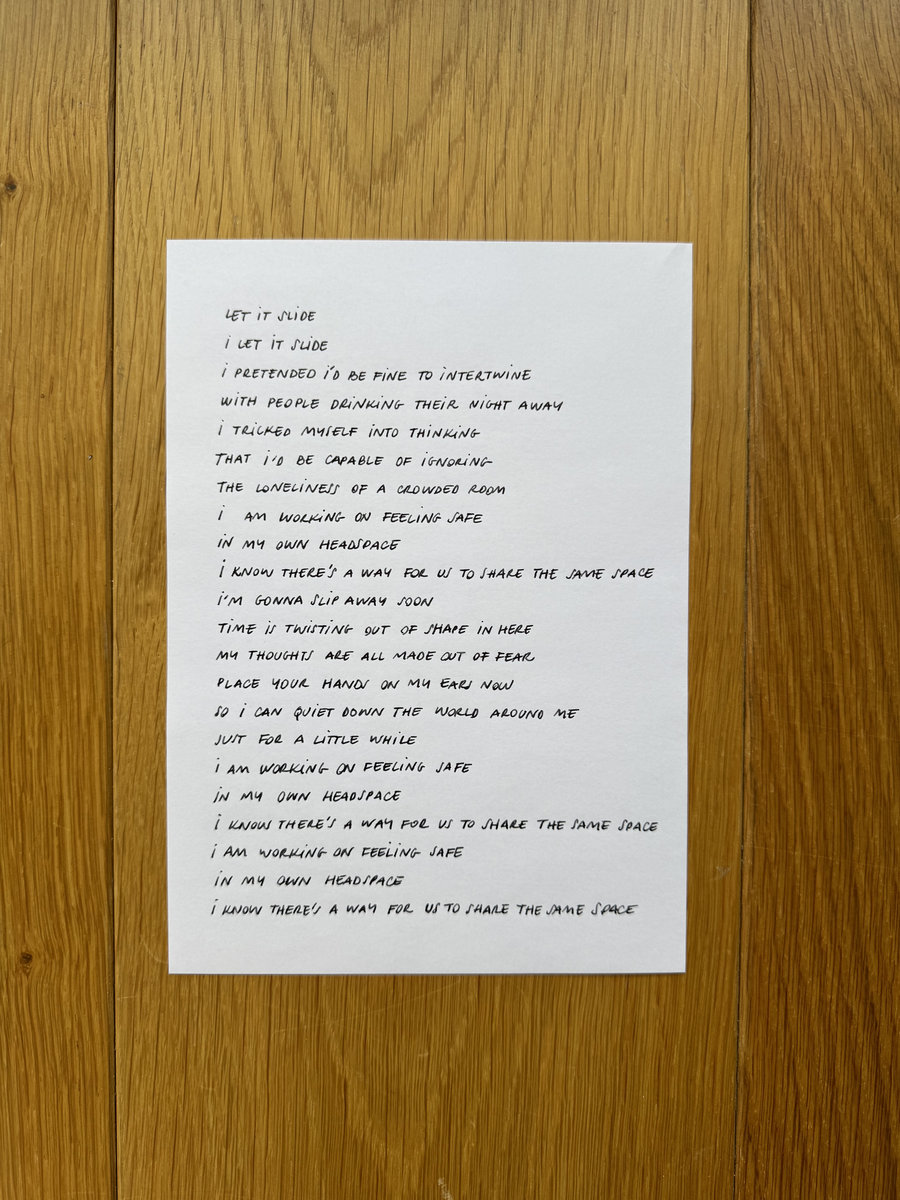 LET iT SLiDE
i LET iT SLiDE
i PRETENDED i'D BE FiNE TO iNTERTWiNE
WiTH PEOPLE DRiNKiNG THEiR NiGHT AWAY
i TRiCKED MYSELF iNTO THiNKiNG
THAT i'D BE CAPABLE OF iGNORiNG
THE LONELiNESS OF A CROWDED ROOM
i AM WORKiNG ON FEELiNG SAFE
iN MY OWN HEADSPACE
i KNOW THERE'S A WAY FOR US TO SHARE THE SAME SPACE
i'M GONNA SLiP AWAY SOON
TiME iS TWiSTiNG OUT OF SHAPE iN HERE
MY THOUGHTS ARE ALL MADE OUT OF FEAR
PLACE YOUR HANDS ON MY EARS NOW
SO i CAN QUiET DOWN THE WORLD AROUND ME
JUST FOR A LiTTLE WHiLE
i AM WORKiNG ON FEELiNG SAFE
iN MY OWN HEADSPACE
i KNOW THERE'S A WAY FOR US TO SHARE THE SAME SPACE
i AM WORKiNG ON FEELiNG SAFE
iN MY OWN HEADSPACE
i KNOW THERE'S A WAY FOR US TO SHARE THE SAME SPACE